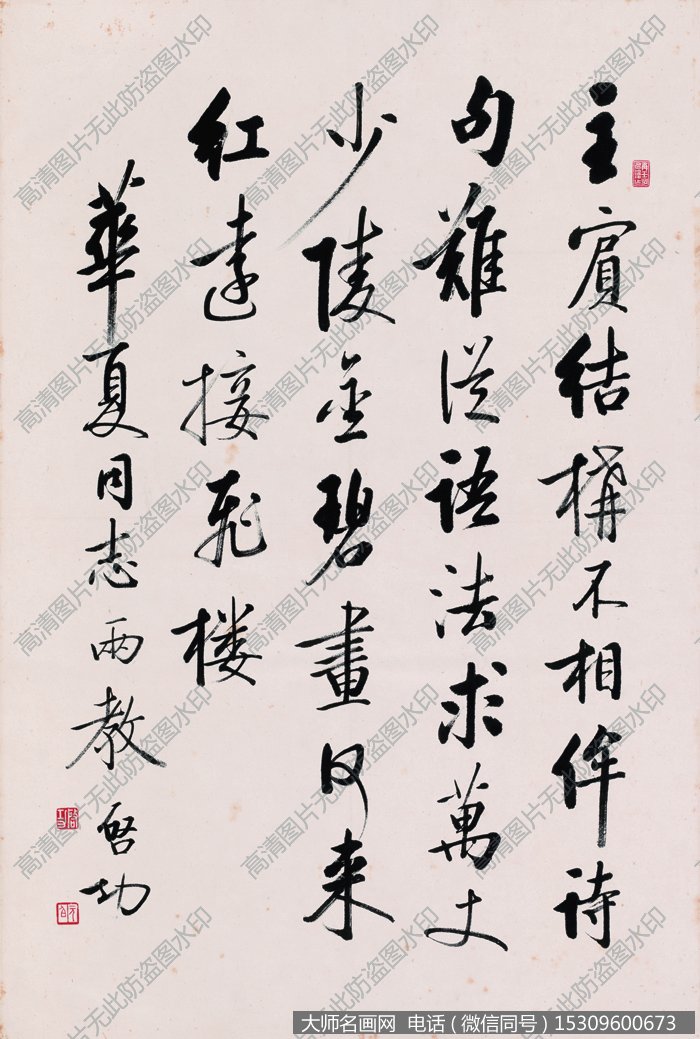 主賓結構不相侔诗
句難從語法求萬丈
少陵金碧畫何来
红遠接飛楼
華夏同志兩教 啓功
高清图片无此防盗图水印
大师名画网 电话（微信同号）15309600673